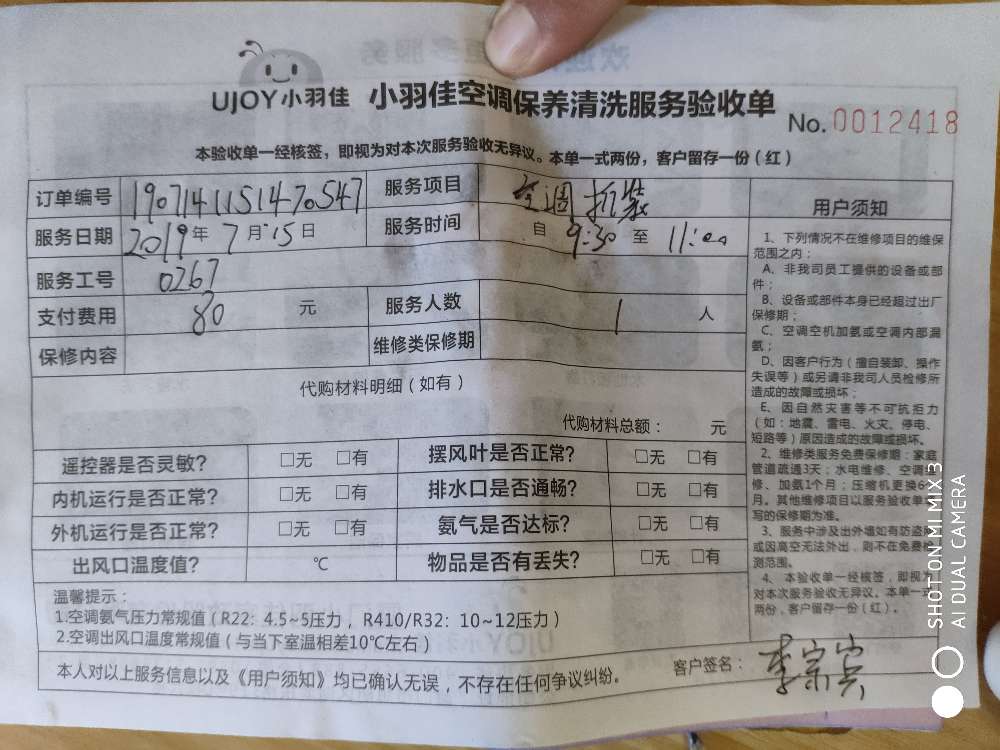 UJOY小羽佳 小羽佳空调保养清洗服务验收单
No. 0012418
本验收单一经核签，即视为对本次服务验收无异议。本单一式两份，客户留存一份（红）
订单编号 1907141151470547 服务项目 空調拆装
服务日期 2019年7月15日 服务时间 自 9:30 至 11:00
服务工号 0267
支付费用 80 元 服务人数 1 人
保修内容 维修类保修期
代购材料明细（如有）
代购材料总额： 元
遥控器是否灵敏? □无 □有 摆风叶是否正常? □无 □有
内机运行是否正常? □无 □有 排水口是否通畅? □无 □有
外机运行是否正常? □无 □有 氨气是否达标? □无 □有
出风口温度值? ℃ 物品是否有丢失? □无 □有
温馨提示：
1.空调氨气压力常规值（R22：4.5~5压力，R410/R32：10~12压力）
2.空调出风口温度常规值（与当下室温相差10℃左右）
本人对以上服务信息以及《用户须知》均已确认无误，不存在任何争议纠纷。
客户签名： 李宗宾
用户须知
1、下列情况不在维修项目的维保
范围之内：
A、非我司员工提供的设备或部
件；
B、设备或部件本身已经超过出厂
保修期；
C、空调空机加氨或空调内部漏
氨；
D、因客户行为（擅自装卸、操作
失误等）或另请非我司人员检修所
造成的故障或损坏；
E、因自然灾害等不可抗拒力
（如：地震、雷电、火灾、停电、
短路等）原因造成的故障或损坏。
2、维修类服务免费保修期：家庭
管道疏通3天；水电维修、空调维
修、加氨1个月；压缩机更换6
月。其他维修项目以服务验收单
写的保修期为准。
3、服务中涉及出外墙如有防盗
或因高空无法外出，则不在免费检
测范围。
4、本验收单一经核签，即视为
对本次服务验收无异议。本单一式
两份，客户留存一份（红）。
SHOT ON MI MIX 3
AI DUAL CAMERA